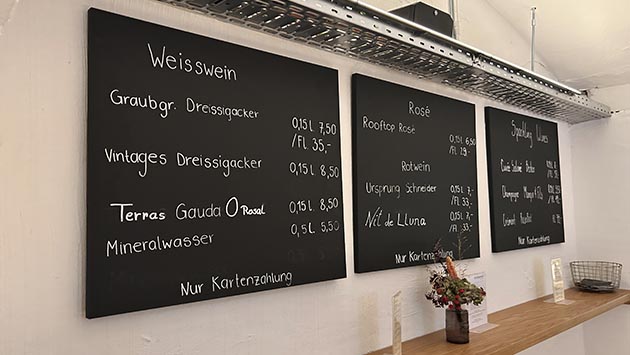 Weisswein
Graubgr. Dreissigacker
0,15 l 7,50
/Fl. 35,-
Vintages Dreissigacker 0,15 l 8,50
Terras Gauda O Rosal 0,15 l. 8,50
Mineralwasser 0,5 l 5,50
Nur Kartenzahlung
Rosé
Rooftop Rosé 0,15 l 6,50
/Fl 29,-
Rotwein
Ursprung Schneider 0,15 l 7,-
/Fl 33,-
Nit de Lluna 0,15 l. 7,-
/Fl 33,-
Nur Kartenzahlung
Sparkling Wines
Champagner
Cremant
Nur Kartenzahlung